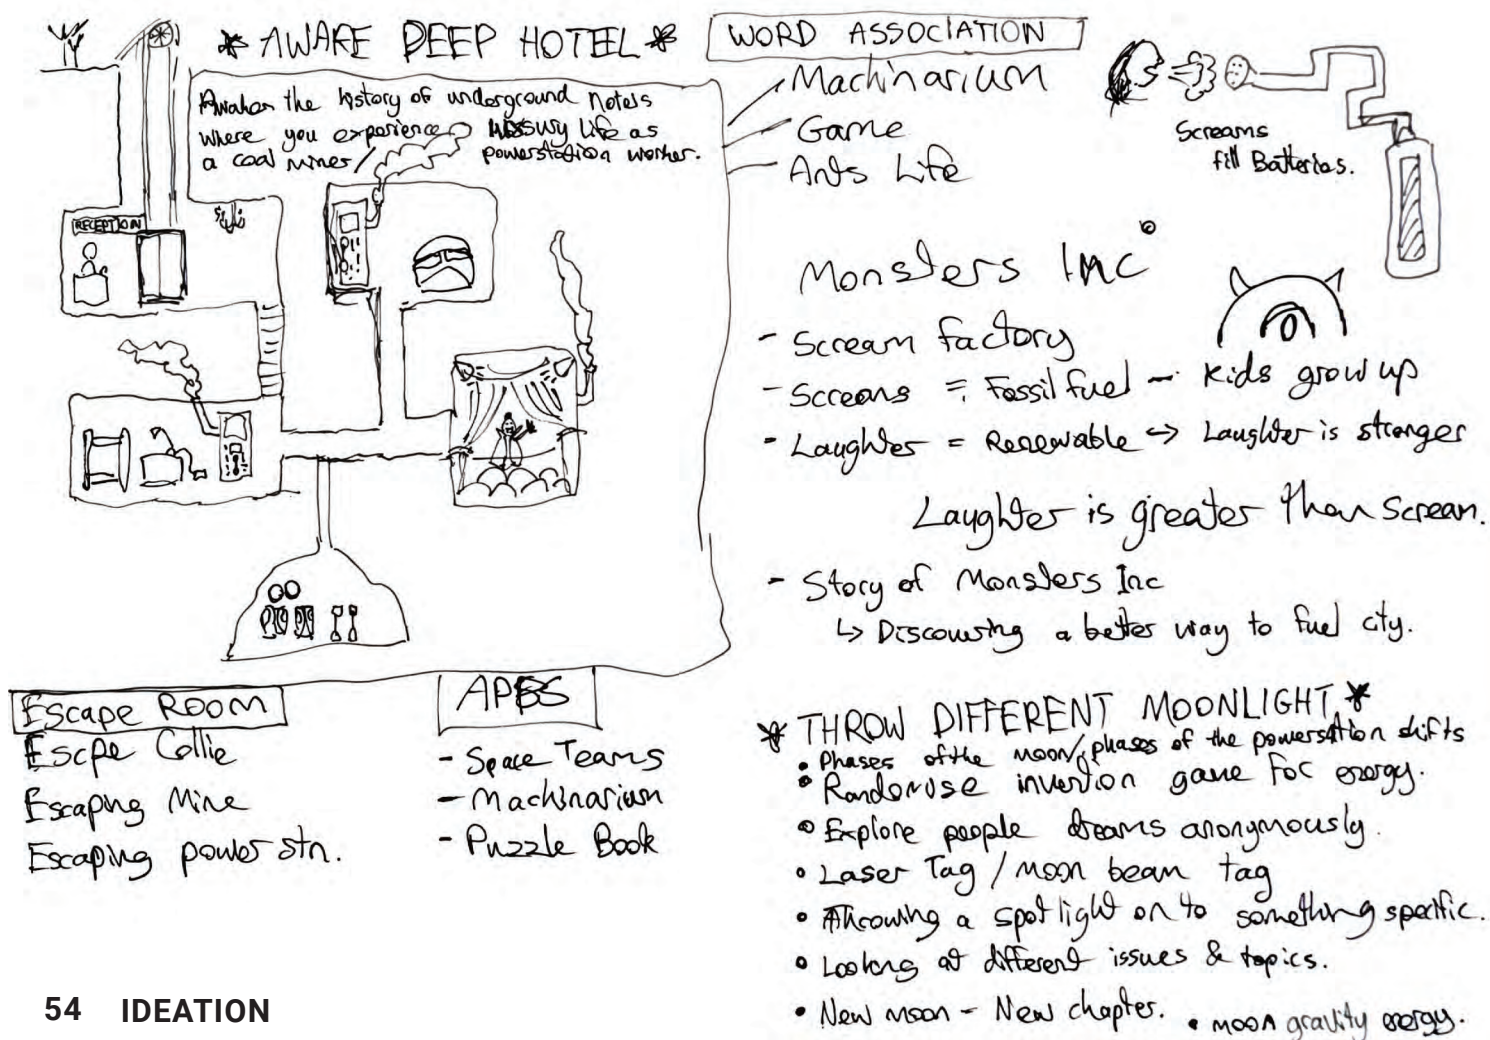 * AWAKE DEEP HOTEL *
Awaken the history of underground hotels
where you experience luxury life as
a coal miner / powerstation worker.
RECEPTION
WORD ASSOCIATION
Machinarium
Game
Ants Life
Screams
fill Batteries.
Monsters Inc
- Scream factory
- Screams = Fossil fuel - Kids grow up
- Laughter = Renewable ↔ Laughter is stronger
Laughter is greater than scream.
- Story of Monsters Inc
↳ Discovering a better way to fuel city.
Escape Room
Escpe Collie
Escaping Mine
Escaping power stn.
APPS
- Space Teams
- Machinarium
- Puzzle Book
* THROW DIFFERENT MOONLIGHT *
• Phases of the moon/phases of the powerstation shifts
• Randomise invention game for energy.
• Explore people dreams anonymously.
• Laser Tag / moon beam tag
• Throwing a spotlight on to something specific.
• Looking at different issues & topics.
• New moon - New chapter.
• moon gravity energy.
54 IDEATION